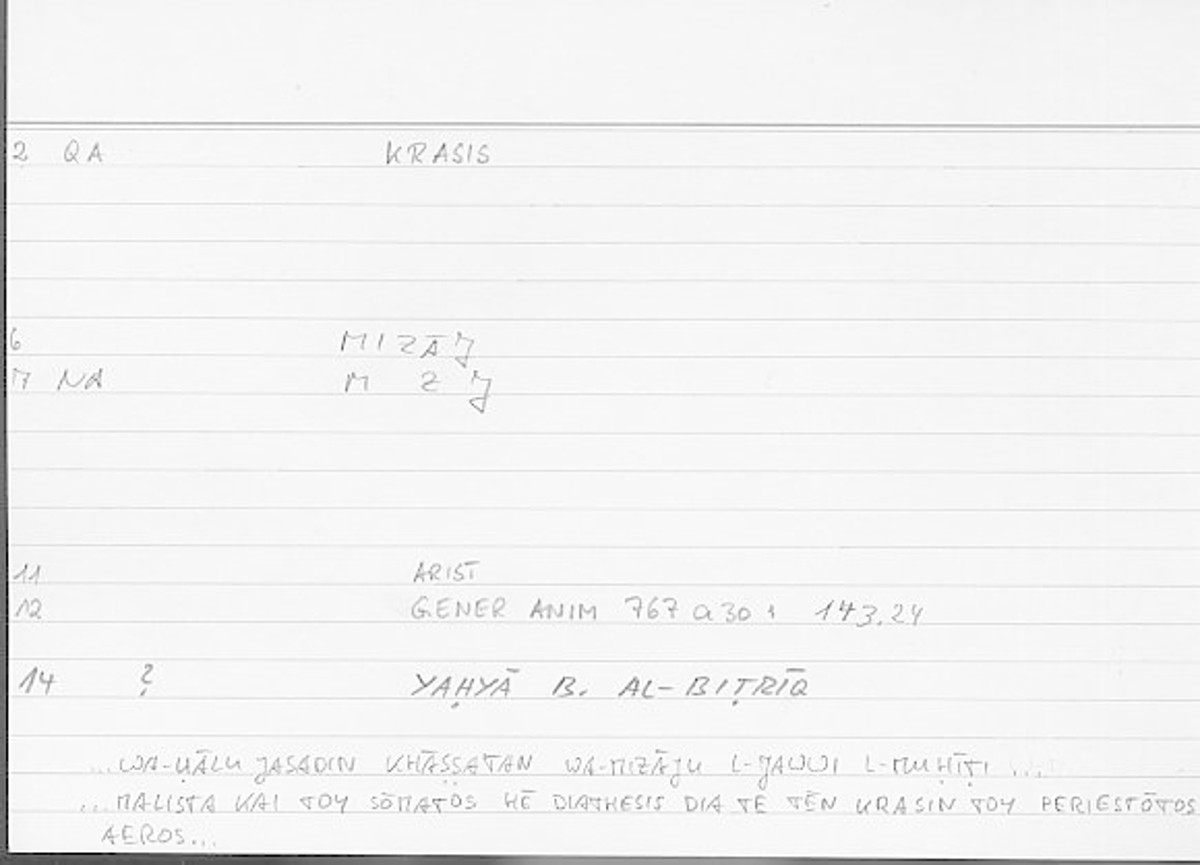 2 QA KRASIS
6 MIZĀJ
7 NA M Z J
11 ARIST
12 GENER ANIM 767 a 30 : 143.24
14 ? YAḤYĀ B. AL-BIṬRĪQ
...WA-ḤĀLU JASADIN KHĀṢṢATAN WA-MIZĀJU L-JAWWI L-MUḤĪṬI ...
...MALISTA KAI TOY SŌMATOS HĒ DIATHESIS DIA TE TĒN KRASIN TOY PERIESTŌTOS
AEROS...